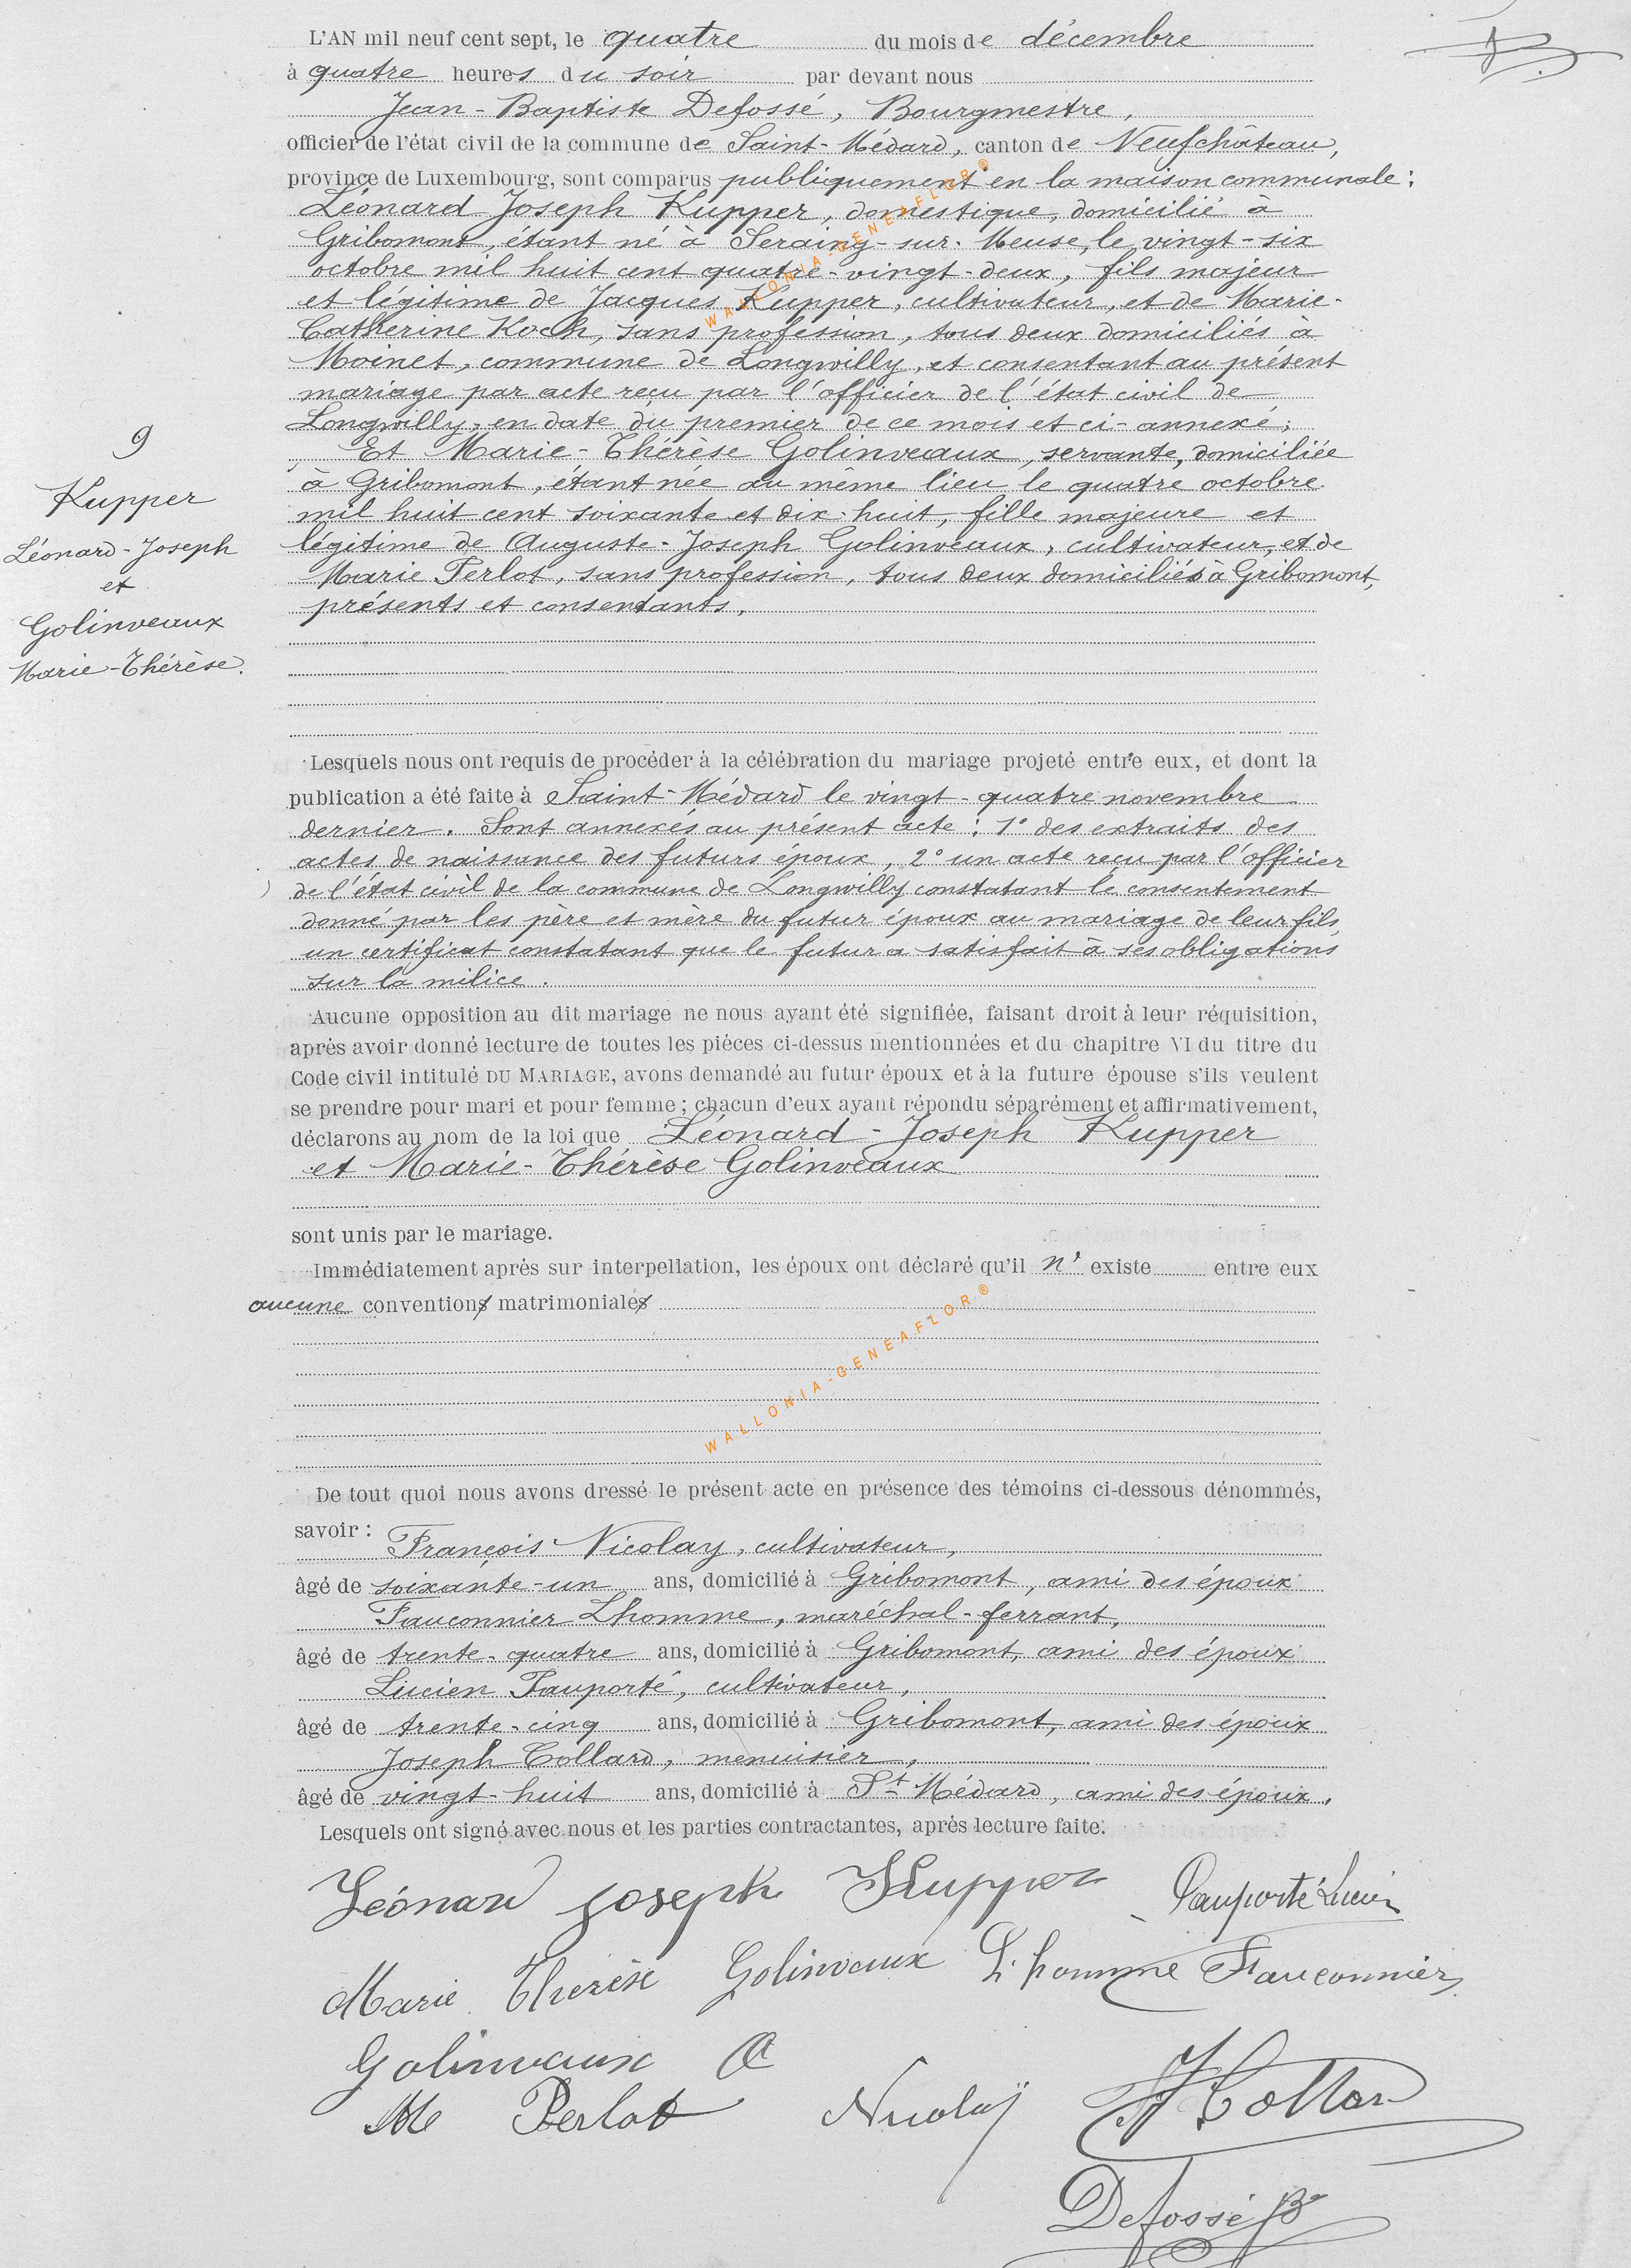 L'AN mil neuf cent sept, le quatre du mois de décembre
à quatre heures du soir par devant nous
Jean-Baptiste Defossé, Bourgmestre,
officier de l'état civil de la commune de Saint-Médard, canton de Neufchâteau,
province de Luxembourg, sont comparus publiquement en la maison communale :
Léonard Joseph Kupper, domestique, domicilié à
Gribomont, étant né à Seraing-sur-Meuse, le vingt-six
octobre mil huit cent quatre-vingt-deux, fils majeur
et légitime de Jacques Kupper, cultivateur, et de Marie-
Catherine Koch, sans profession, tous deux domiciliés à
Moinet, commune de Longwilly, et consentant au présent
mariage par acte reçu par l'officier de l'état civil de
Longwilly, en date du premier de ce mois et ci-annexé;
Et Marie-Thérèse Golinveaux, servante, domiciliée
à Gribomont, étant née au même lieu le quatre octobre
mil huit cent soixante et dix-huit, fille majeure et
légitime de Auguste-Joseph Golinveaux, cultivateur, et de
Marie Perlot, sans profession, tous deux domiciliés à Gribomont,
présents et consentants.
9
Kupper
Léonard-Joseph
et
Golinveaux
Marie-Thérèse.
Lesquels nous ont requis de procéder à la célébration du mariage projeté entre eux, et dont la
publication a été faite à Saint-Médard le vingt-quatre novembre
dernier. Sont annexés au présent acte : 1° des extraits des
actes de naissance des futurs époux, 2° un acte reçu par l'officier
de l'état civil de la commune de Longwilly constatant le consentement
donné par les père et mère du futur époux au mariage de leur fils,
un certificat constatant que le futur a satisfait à ses obligations
sur la milice.
Aucune opposition au dit mariage ne nous ayant été signifiée, faisant droit à leur réquisition,
après avoir donné lecture de toutes les pièces ci-dessus mentionnées et du chapitre VI du titre du
Code civil intitulé DU MARIAGE, avons demandé au futur époux et à la future épouse s'ils veulent
se prendre pour mari et pour femme ; chacun d'eux ayant répondu séparément et affirmativement,
déclarons au nom de la loi que Léonard-Joseph Kupper
et Marie-Thérèse Golinveaux
sont unis par le mariage.
Immédiatement après sur interpellation, les époux ont déclaré qu'il n' existe entre eux
aucune conventions matrimoniales
De tout quoi nous avons dressé le présent acte en présence des témoins ci-dessous dénommés,
savoir : François Nicolay, cultivateur,
âgé de soixante-un ans, domicilié à Gribomont, ami des époux
Fauconnier Lhomme, maréchal-ferrant,
âgé de trente-quatre ans, domicilié à Gribomont, ami des époux
Lucien Pauporté, cultivateur,
âgé de trente-cinq ans, domicilié à Gribomont, ami des époux
Joseph Collard, menuisier,
âgé de vingt-huit ans, domicilié à St Médard, ami des époux.
Lesquels ont signé avec nous et les parties contractantes, après lecture faite.
Léonard Joseph Kupper Pauporté Lucien
Marie Therèse Golinvaux L'homme Fauconnier
Golinvaux A
M Perlot Nicolaÿ J Collard
Defossé JB
WALLONIA-GENEAFLOR ®
WALLONIA-GENEAFLOR ®